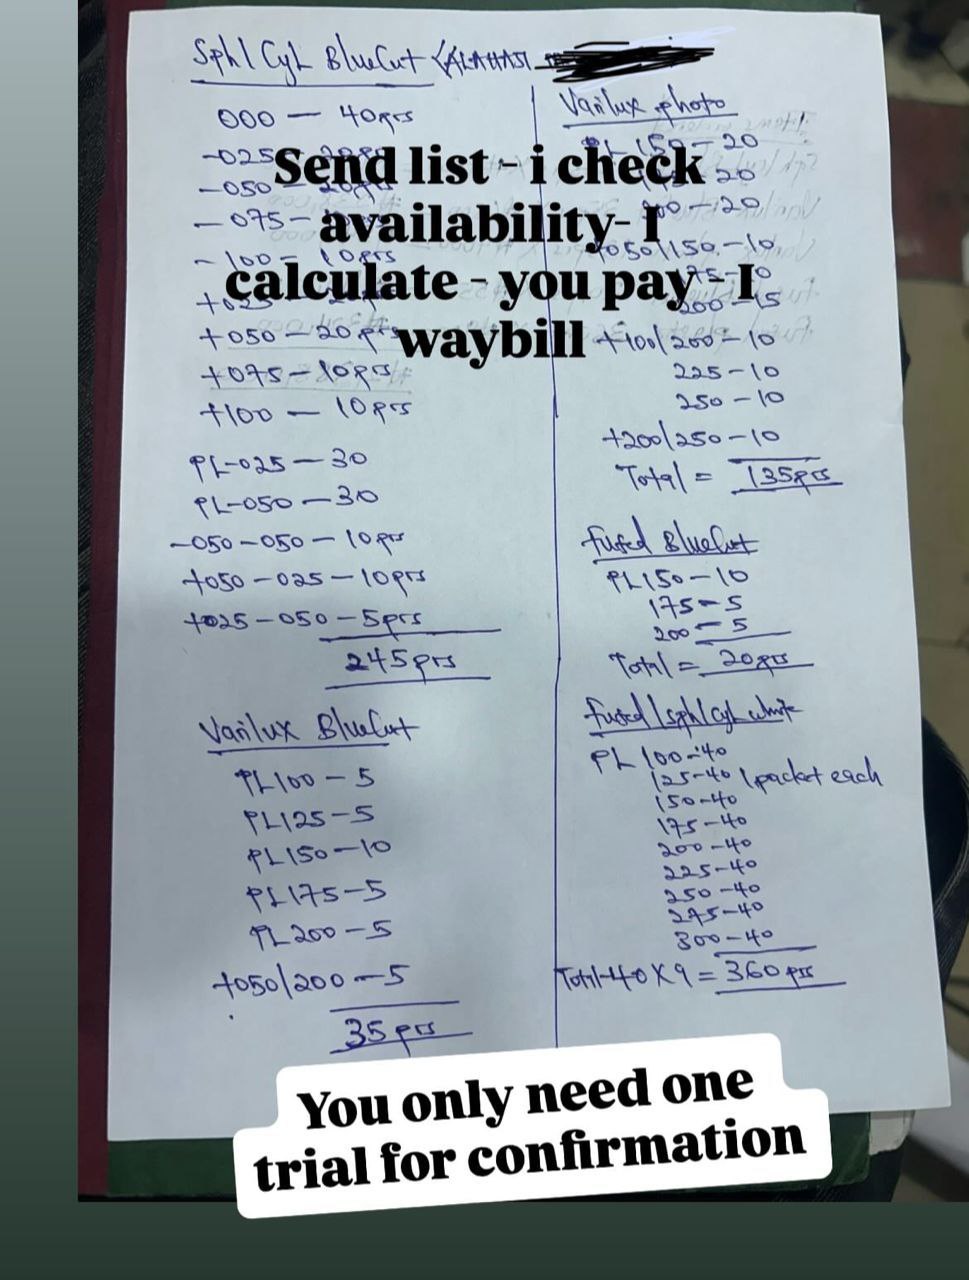 Sph/Cyl BlueCut
000 — 40prs
-025
-050 — 20prs
-075 —
-100 — 10prs
+025
+050 — 20prs
+075 — 10prs
+100 — 10prs
PL-025 — 30
PL-050 — 30
-050-050 — 10prs
+050-025 — 10prs
+025-050 — 5prs
245prs
Varilux BlueCut
PL100 — 5
PL125 — 5
PL150 — 10
PL175 — 5
PL200 — 5
+050/200 — 5
35prs
Varilux photo
PL150 — 20
20
200 — 20
+050/150 — 10
175 — 10
200 — 15
+100/200 — 10
225 — 10
250 — 10
+200/250 — 10
Total = 135prs
fused BlueCut
PL150 — 10
175 — 5
200 — 5
Total = 20prs
fused/sph/cyl white
PL 100-40
125-40 1packet each
150-40
175-40
200-40
225-40
250-40
275-40
300-40
Total 40X9 = 360prs
Send list - i check
availability- I
calculate - you pay - I
waybill
You only need one
trial for confirmation